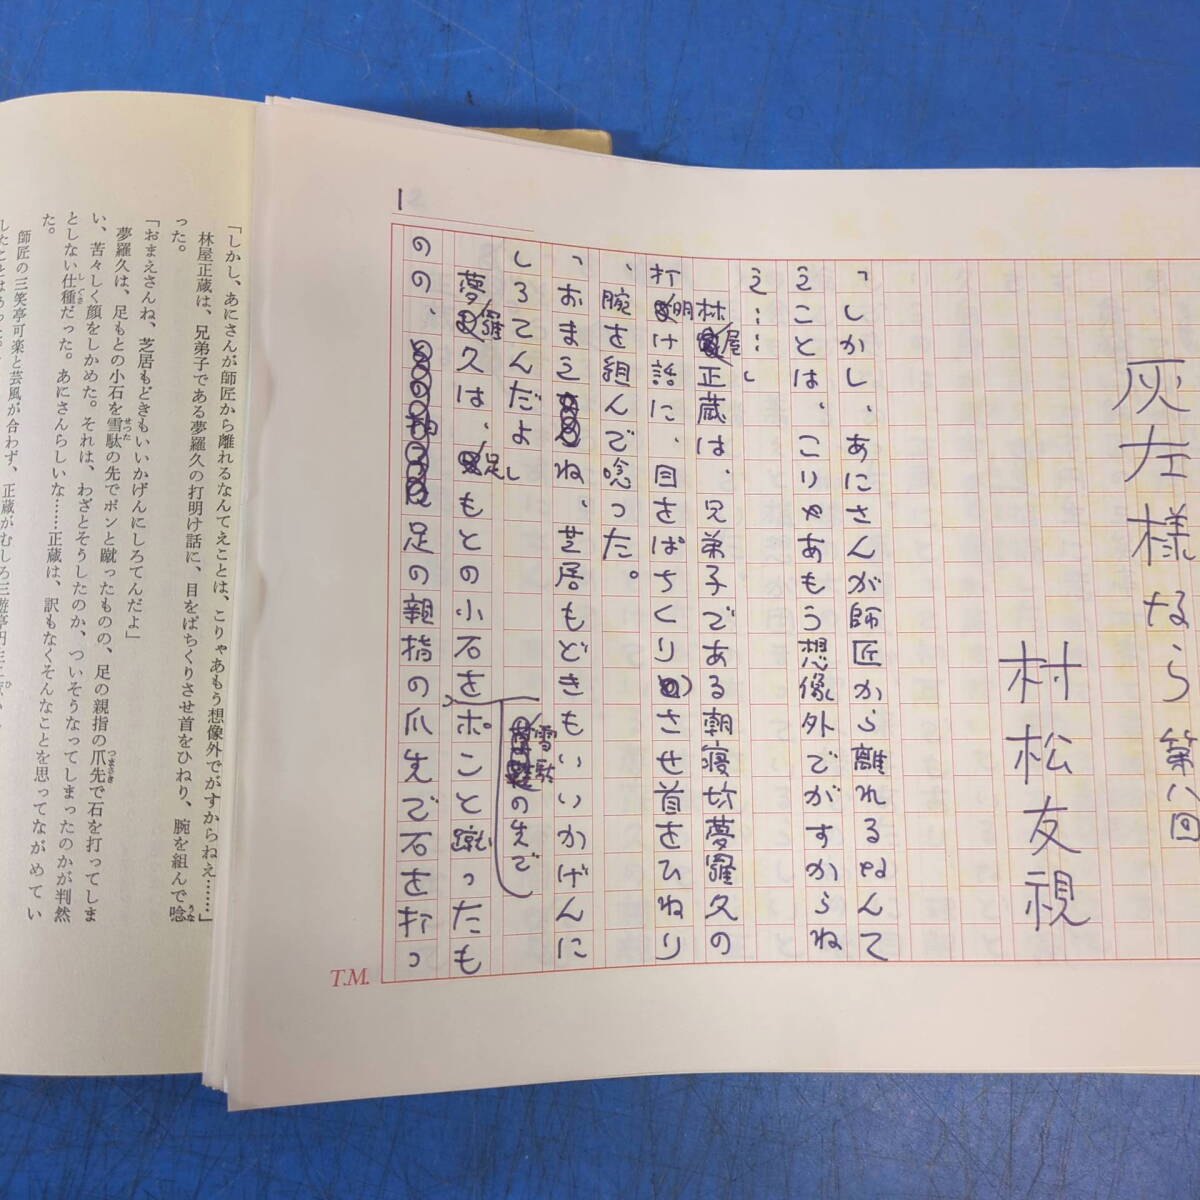 1
灰左様なら 第八回
村松友視
「しかし、あにさんが師匠から離れるなんて
えことは、こりゃあもう想像外でがすからね
え……」
林屋正蔵は、兄弟子である朝寝坊夢羅久の
打明け話に、目をぱちくりさせ首をひねり
、腕を組んで唸った。
「おまえね、芝居もどきもいいかげんに
しろてんだよ」
雪駄の先で
夢羅久は、足もとの小石をポンと蹴ったも
のの、足の親指の爪先で石を打っ
T.M.
「しかし、あにさんが師匠から離れるなんてえことは、こりゃあもう想像外でがすからねえ……」
林屋正蔵は、兄弟子である夢羅久の打明け話に、目をぱちくりさせ首をひねり、腕を組んで唸
うな
った。
「おまえさんね、芝居もどきもいいかげんにしろてんだよ」
夢羅久は、足もとの小石を雪駄の先でポンと蹴ったものの、足の親指の爪先で石を打ってしま
せった
つまさき
い、苦々しく顔をしかめた。それは、わざとそうしたのか、ついそうなってしまったのかが判然
としない仕種だった。あにさんらしいな……正蔵は、訳もなくそんなことを思ってながめてい
しぐさ
た。
師匠の三笑亭可楽と芸風が合わず、正蔵がむしろ三遊亭円生に